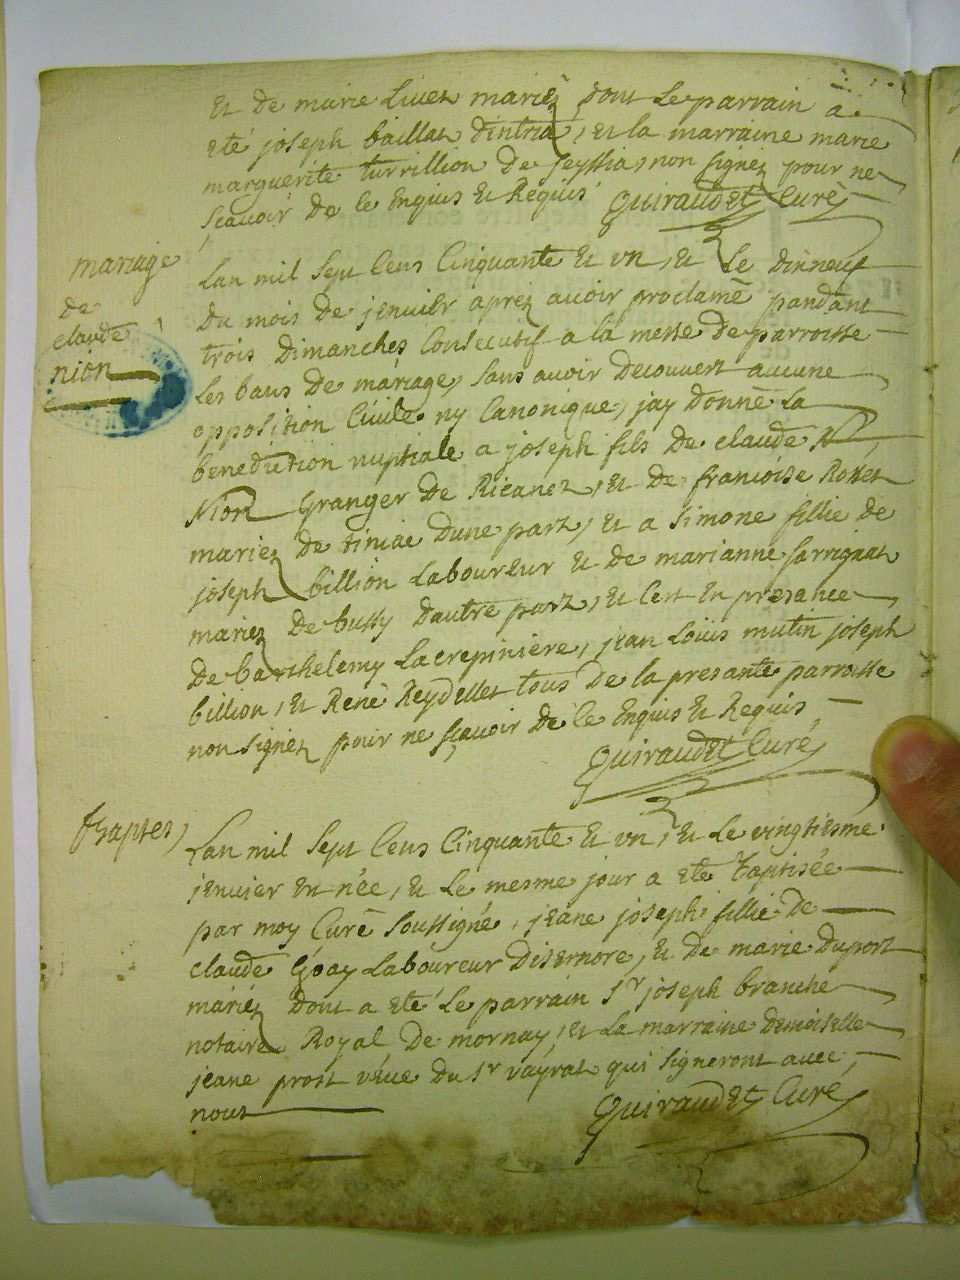 Et de marie Livet mariéz dont le parrain a
eté joseph baillat dintria, et la marraine marie
marguerite turrillion de seyssia, non signéz pour ne
scavoir de ce Enquis Et Requis Quiraudet Curé
mariage
de
claude
nion
Lan mil sept Cens Cinquante Et vn, Et Le dixneuf
du mois de jenvier apréz avoir proclamé pandant
trois dimanches Consecutif a la messe de parroisse
Les bans de mariage, sans avoir decouvert aucune
opposition Civiles ny Canonique, jay donné La
benediction nuptiale a joseph fils de claude N
Nion Granger de Ricanet, Et de francoise Rosset
mariez de tiniac dune part, Et a simone fillie de
joseph billion Laboureur Et de marianne sarrignat
mariez de bussy dautre part, Et Cest En presance
de barthelemy Lacrepiniere, jean Loüis mutin joseph
billion, Et René Reydellet tous de la presante parroisse
non signéz pour ne sçavoir de Ce Enquis Et Requis
Quiraudet Curé
Baptes,
Lan mil sept Cens Cinquante Et vn, Et Le vingtiesme
jenvier En née, Et Le mesme jour a eté baptisée
par moy Curé soussigné, jeane joseph fillie de
claude Goay Laboureur disernore, Et de marie duport
mariéz dont a eté Le parrain sr joseph branche
notaire Royal de mornay, Et La marraine demoiselle
jeane prost véue du sr vayrat qui signeront avec
nous Quiraudet Curé